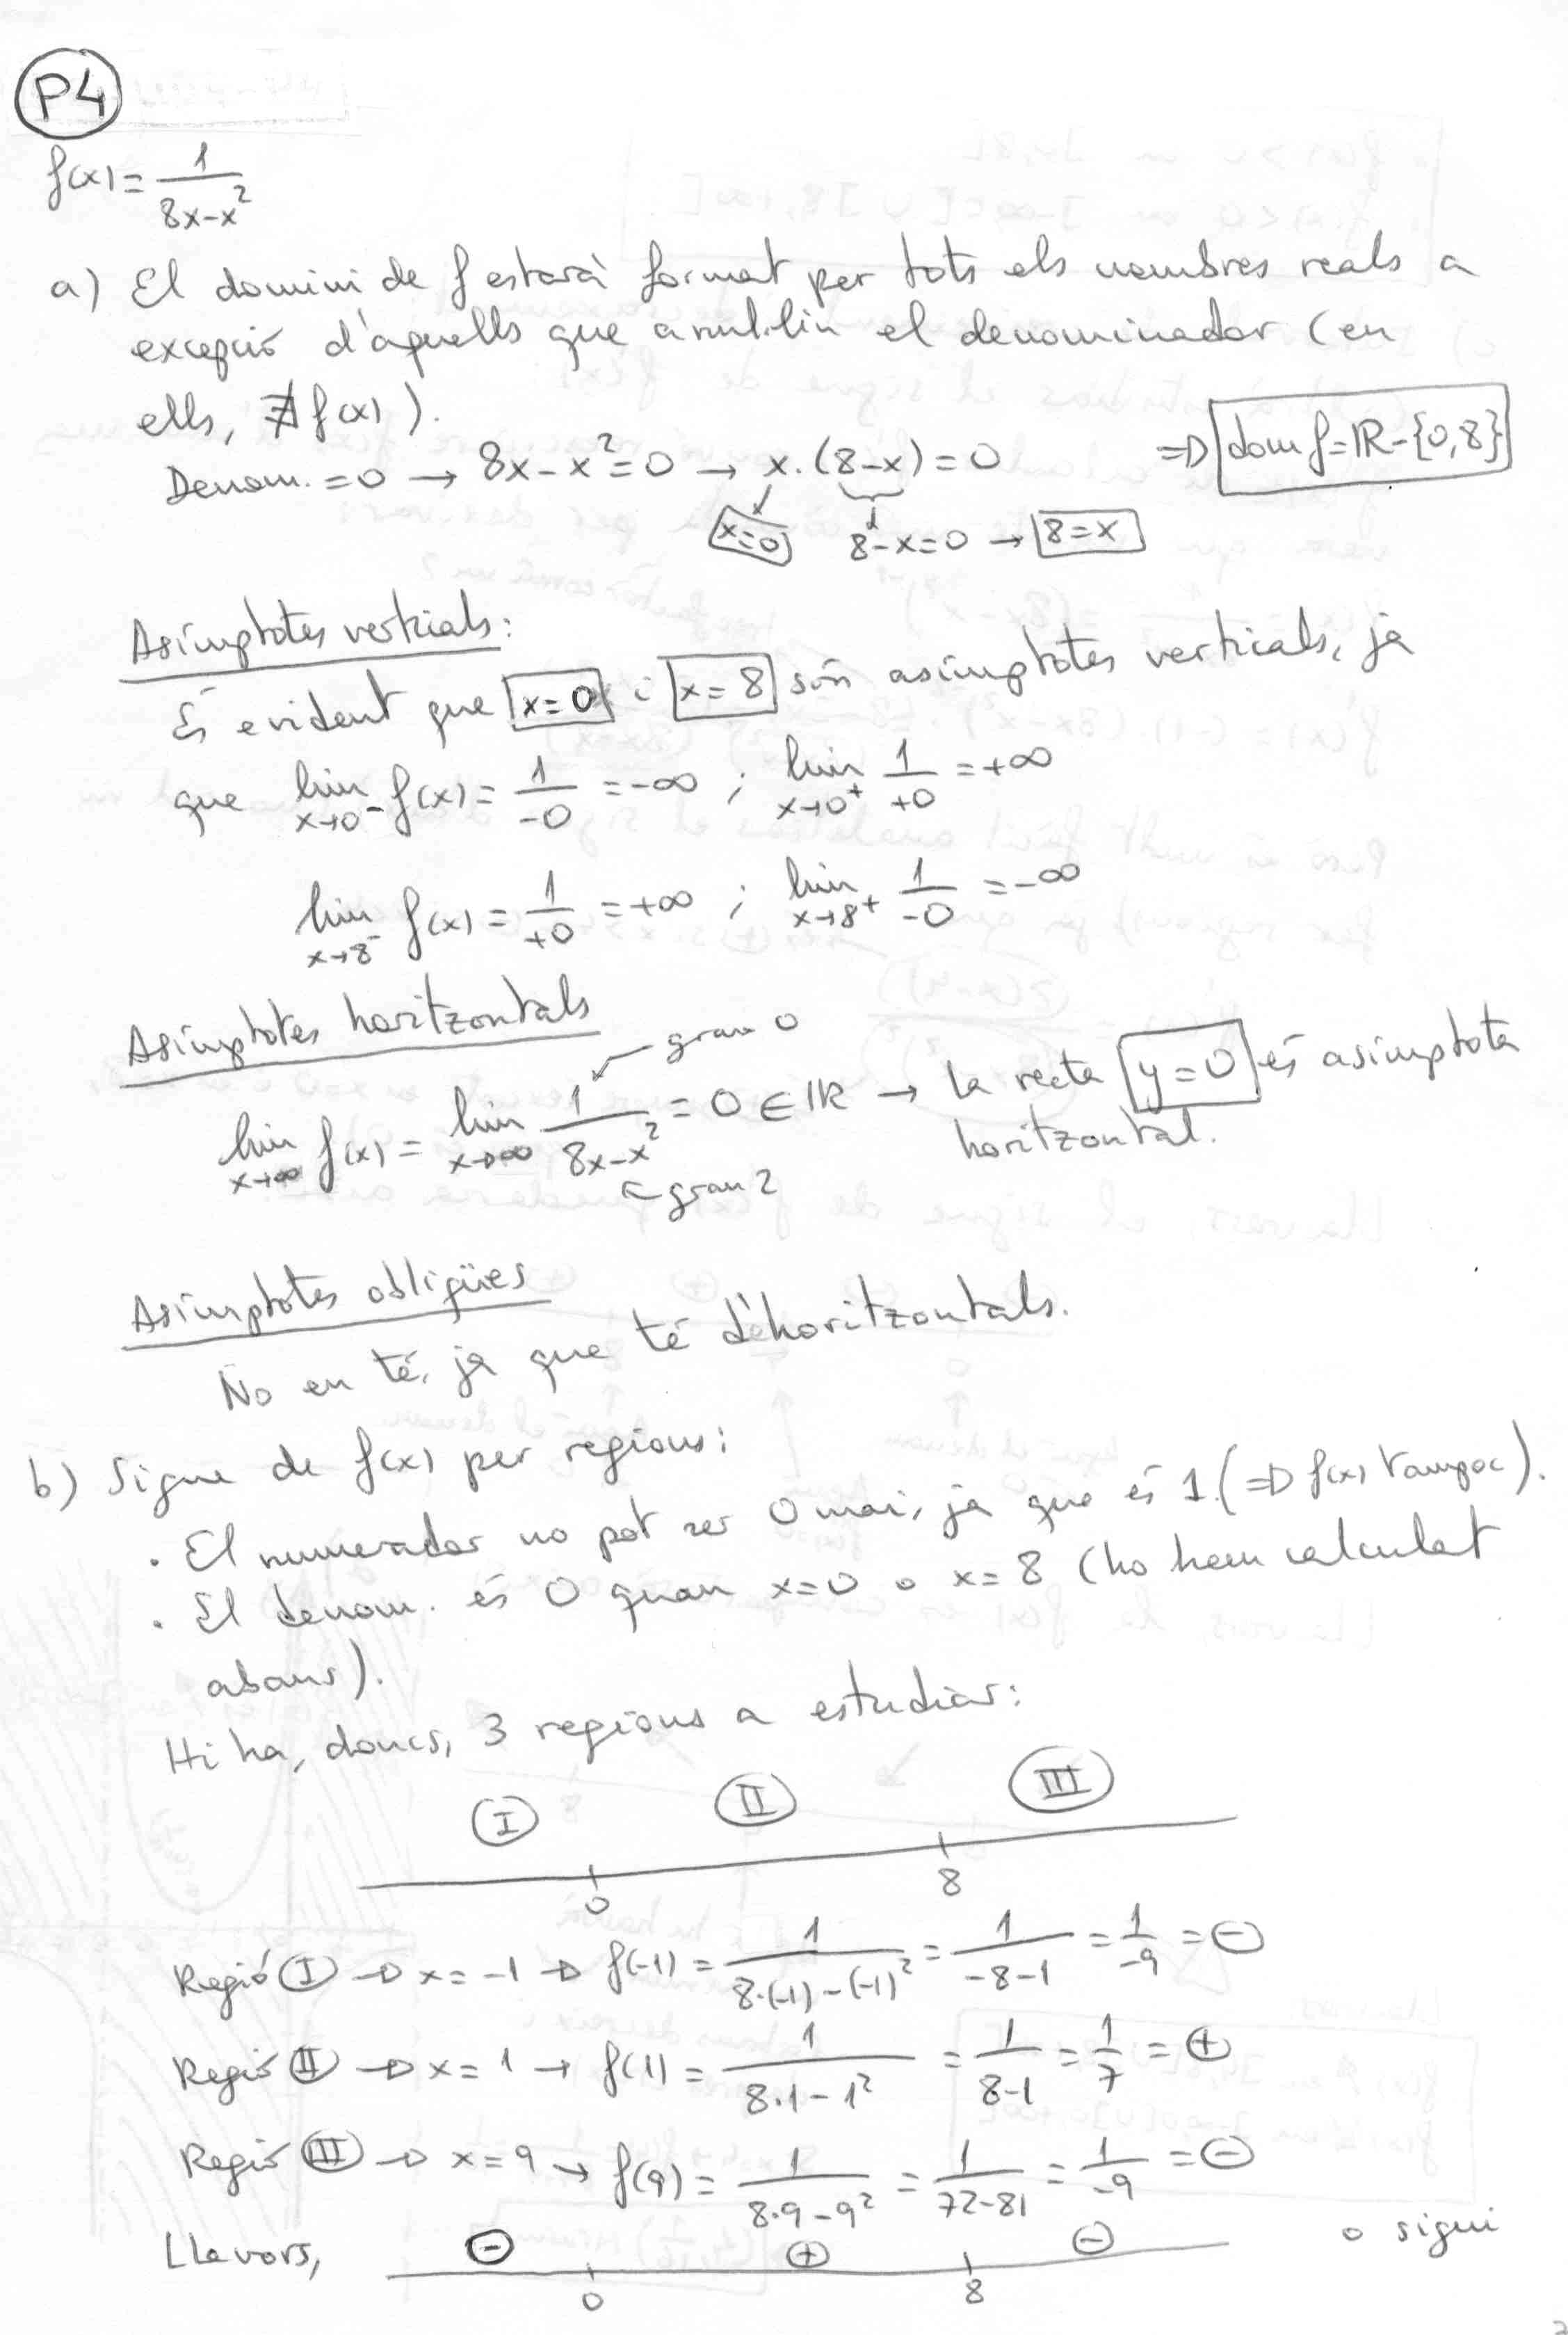 P4
f(x) = 1/(8x-x²)
a) El domini de f estarà format per tots els nombres reals a
excepció d'aquells que anul·lin el denominador (en
ells, ∄ f(x)).
Denom. = 0 → 8x-x² = 0 → x·(8-x) = 0 ⇒ dom f = ℝ - {0,8}
x=0 8-x=0 → 8=x
Asímptotes verticals:
És evident que x=0 i x=8 són asímptotes verticals, ja
que lim x→0⁻ f(x) = 1/-0 = -∞ ; lim x→0⁺ 1/+0 = +∞
lim x→8⁻ f(x) = 1/+0 = +∞ ; lim x→8⁺ 1/-0 = -∞
Asímptotes horitzontals
← grau 0
lim x→∞ f(x) = lim x→∞ 1/(8x-x²) = 0 ∈ ℝ → la recta y=0 és asímptota
horitzontal.
← grau 2
Asímptotes obliqües
No en té, ja que té d'horitzontals.
b) Signe de f(x) per regions:
· El numerador no pot ser 0 mai, ja que és 1. (⇒ f(x) tampoc).
· El denom. és 0 quan x=0 o x=8 (ho hem calculat
abans).
Hi ha, doncs, 3 regions a estudiar:
I II III
0 8
Regió I → x=-1 → f(-1) = 1/(8·(-1)-(-1)²) = 1/(-8-1) = 1/-9 = ⊖
Regió II → x=1 → f(1) = 1/(8·1-1²) = 1/(8-1) = 1/7 = ⊕
Regió III → x=9 → f(9) = 1/(8·9-9²) = 1/(72-81) = 1/-9 = ⊖
Llavors, ⊖ ⊕ ⊖ o sigui
0 8